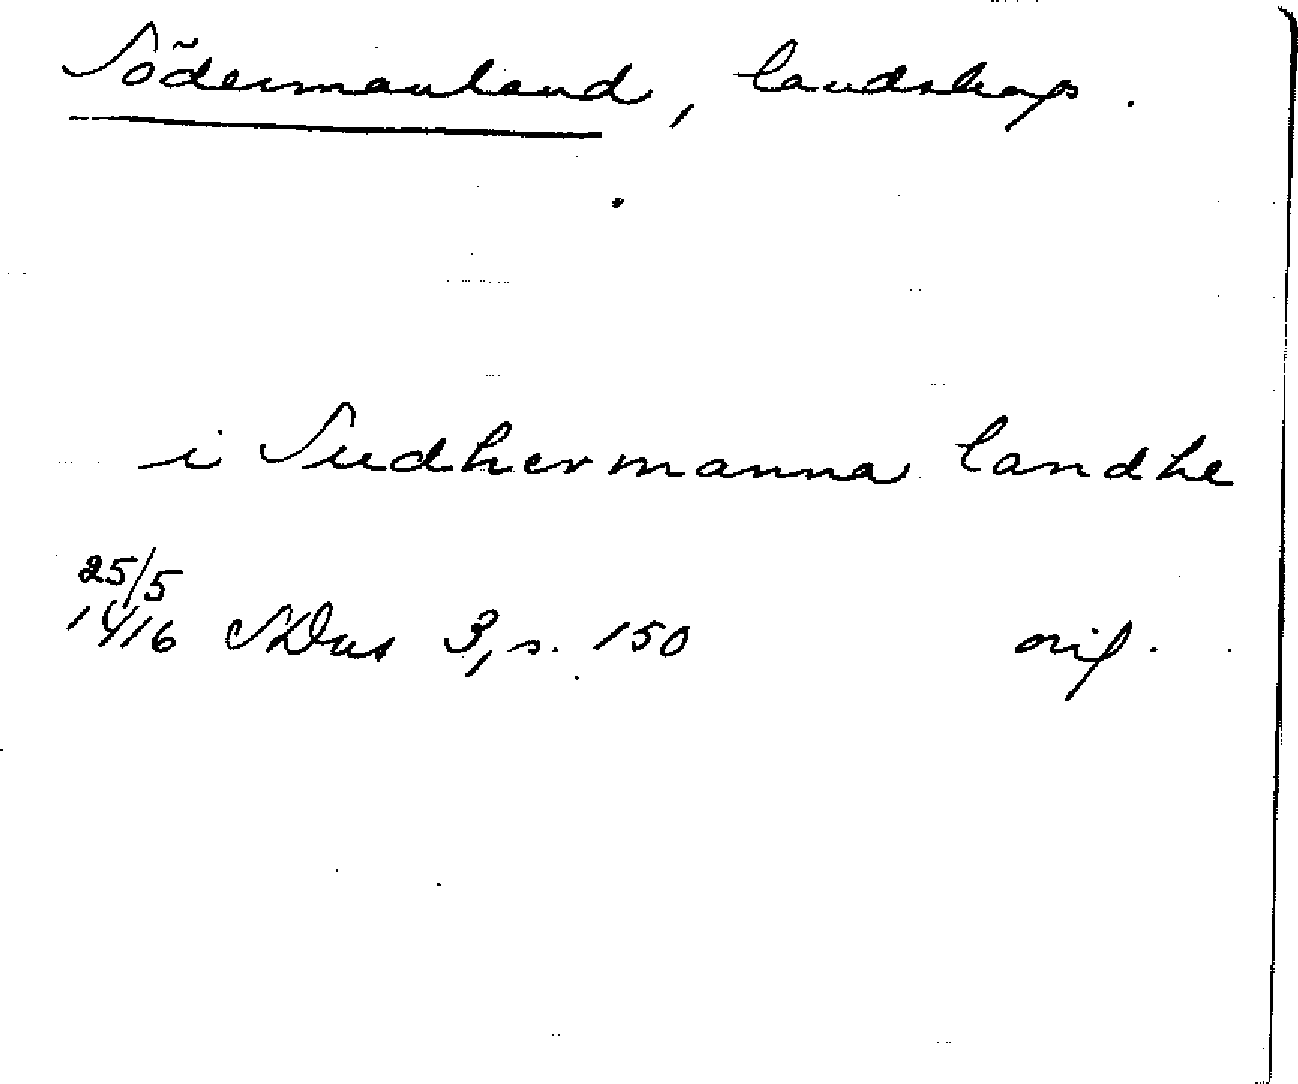 Södermanland, landskap.
i Sudhermanna landhe
25/5
1416 SDns 3, s. 150 orig.